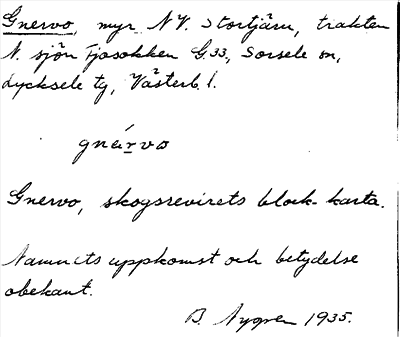 Gnervo, myr NV. Stortjärn, trakten
N. sjön Tjasokken G.33, Sorsele sn,
Lycksele tg, Västerb. l.
gnærvo
Gnervo, skogsrevirets block-karta.
Namnets uppkomst och betydelse
obekant.
B. Nygren 1935.